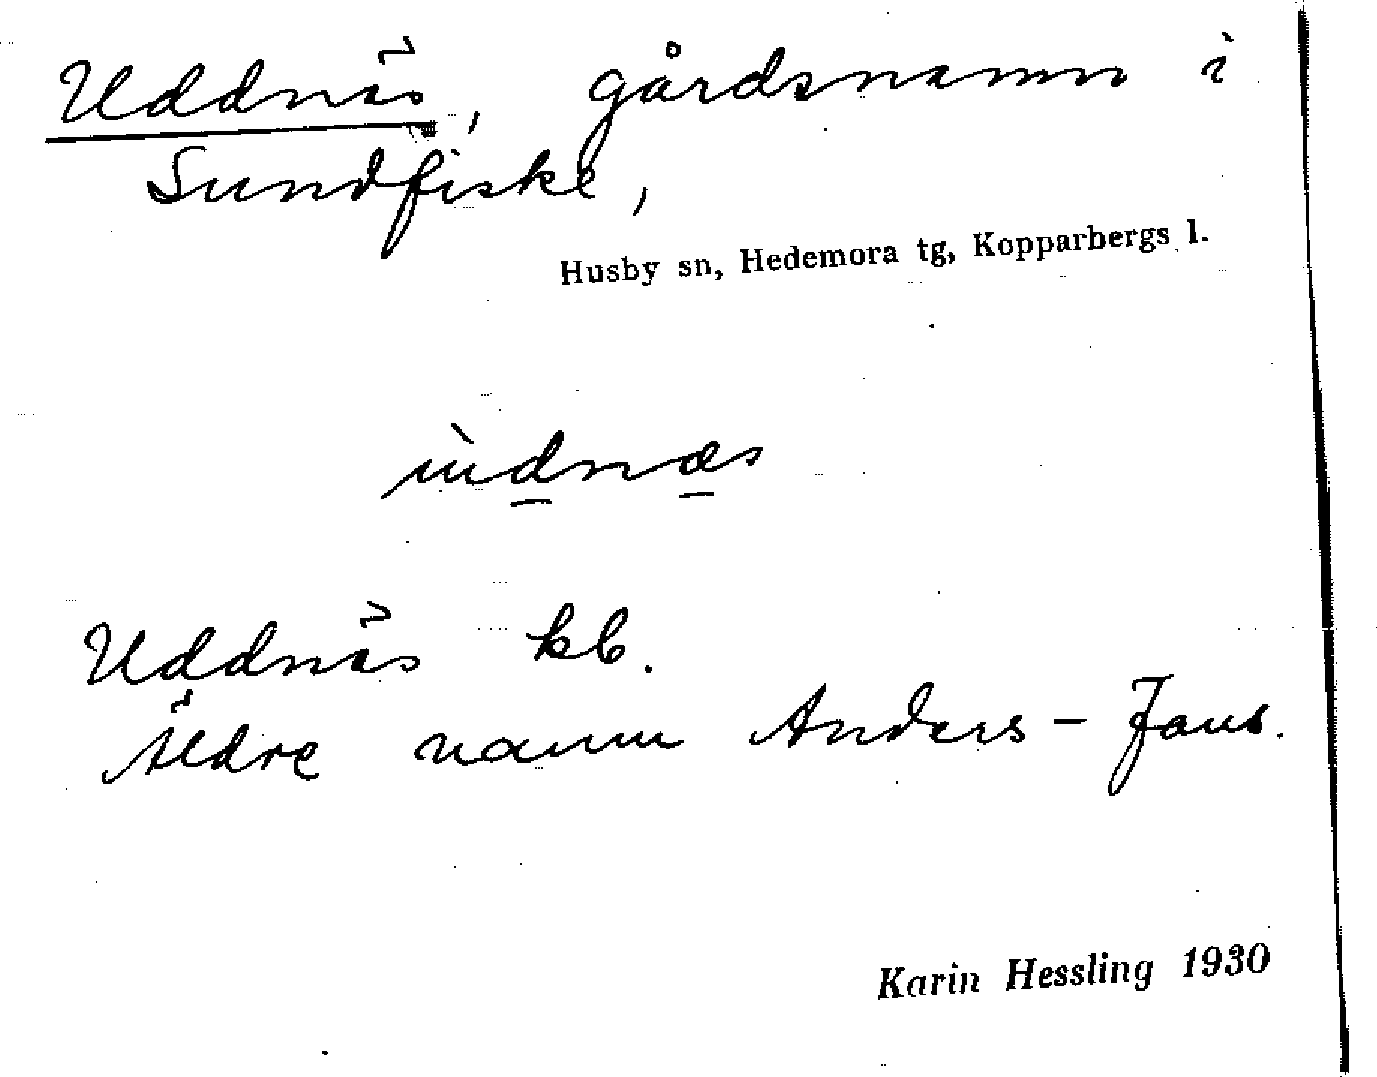 Uddnäs, gårdsnamn i
Sundfiske,
Husby sn, Hedemora tg, Kopparbergs l.
ùdnæs
Uddnäs kb.
Äldre namn Anders-Jans.
Karin Hessling 1930